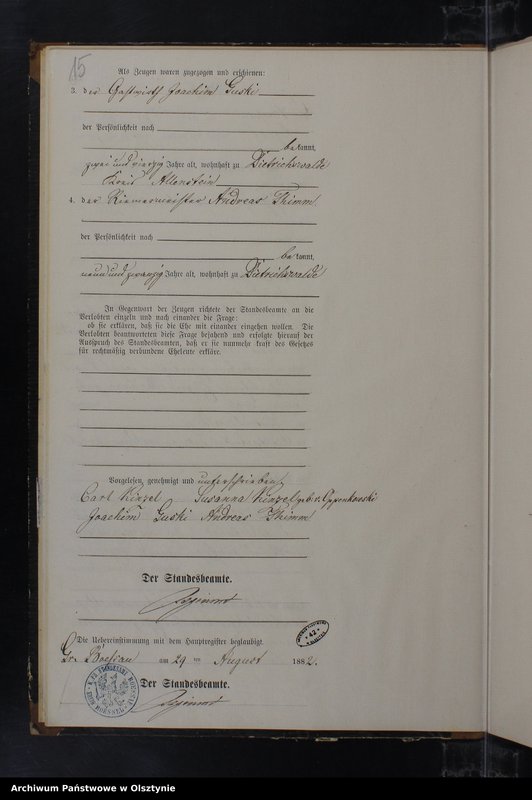 15
Als Zeugen waren zugezogen und erschienen:
3. der Gastwirth Joachim Guski
der Persönlichkeit nach
bekannt,
zwei und vierzig Jahre alt, wohnhaft zu Dietrichswalde
Kreis Allenstein
4. der Riemermeister Andreas Thimm
der Persönlichkeit nach
bekannt,
neun und zwanzig Jahre alt, wohnhaft zu Dietrichswalde
In Gegenwart der Zeugen richtete der Standesbeamte an die
Verlobten einzeln und nach einander die Frage:
ob sie erklären, daß sie die Ehe mit einander eingehen wollen. Die
Verlobten beantworteten diese Frage bejahend und erfolgte hierauf der
Ausspruch des Standesbeamten, daß er sie nunmehr kraft des Gesetzes
für rechtmäßig verbundene Eheleute erkläre.
Vorgelesen, genehmigt und unterschrieben
Carl Kinzel Susanna Kinzel geb. v.
Joachim Guski Andreas Thimm
Der Standesbeamte.
Die Uebereinstimmung mit dem Hauptregister beglaubigt.
Gr. Boessau am 29 ten August 1882.
42
Der Standesbeamte.
Archiwum Państwowe w Olsztynie